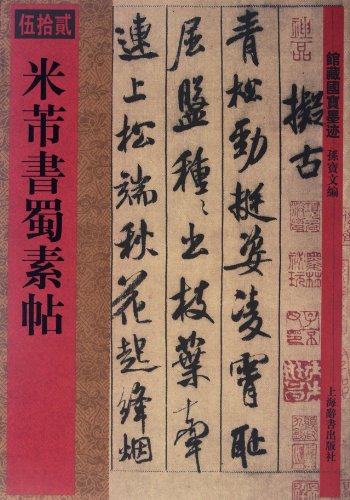 伍拾貳
米芾書蜀素帖
館藏國寶墨迹
孫寶文編
上海辭書出版社
神品
擬古
青松勁挺姿凌霄恥
屈盤種〻出枝葉牽
連上松端秋花起絳烟